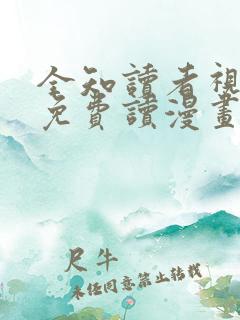 全知讀者視
免費讀漫畫
尺牛
未經同意禁止轉載